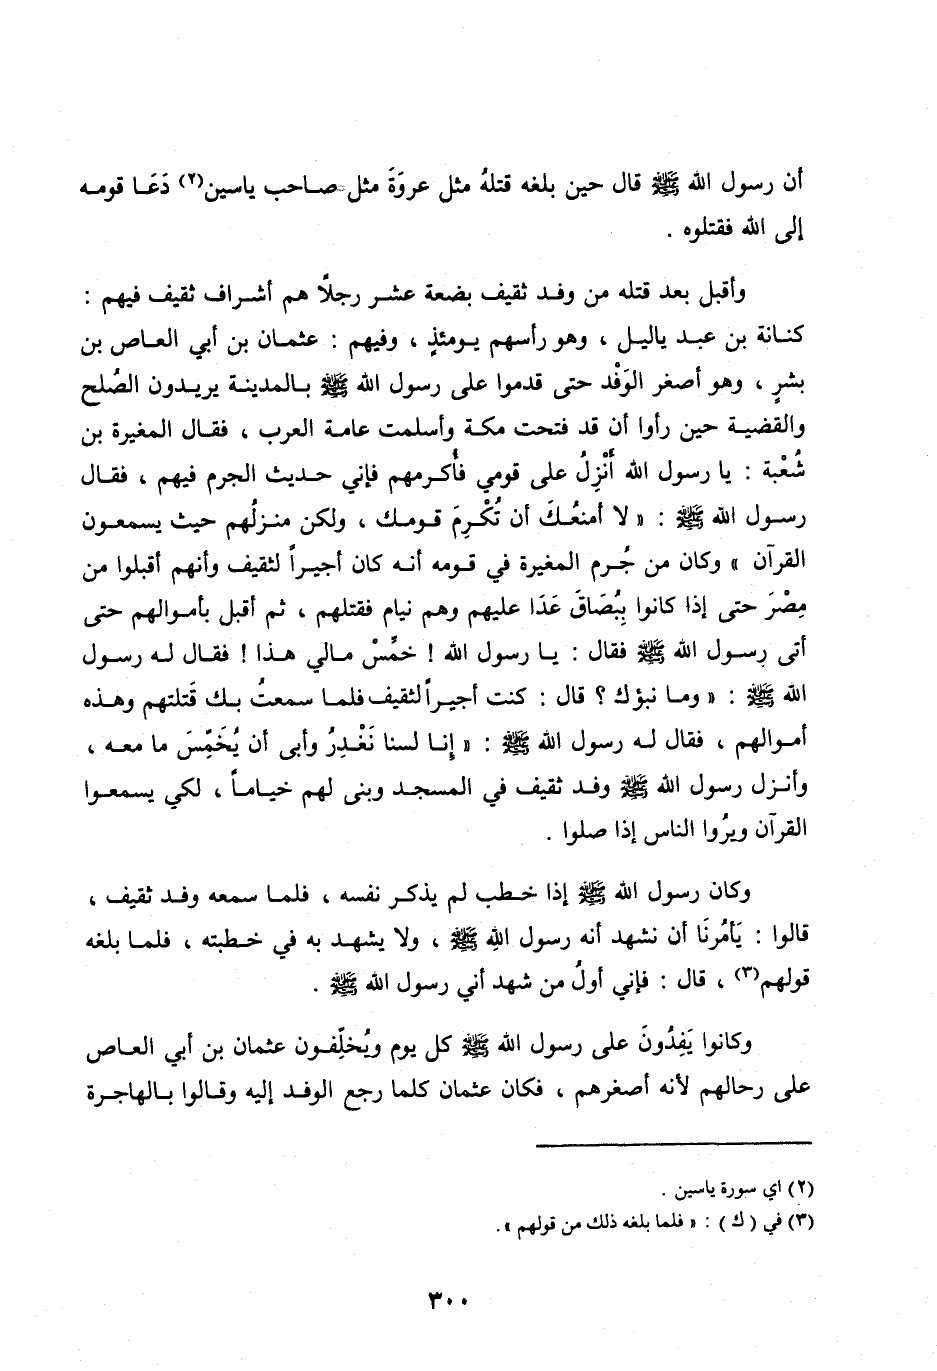 أن رسول الله ﷺ قال حين بلغه قتلهُ مثل عروَةَ مثل صاحب ياسين(٢) دَعَا قومه
إلى الله فقتلوه .
وأقبل بعد قتله من وفد ثقيف بضعة عشر رجلاً هم أشراف ثقيف فيهم :
كنانة بن عبد ياليل ، وهو رأسهم يومئذٍ ، وفيهم : عثمان بن أبي العاص بن
بشرٍ ، وهو أصغر الوَفْد حتى قدموا على رسول الله ﷺ بالمدينة يريدون الصُلح
والقضية حين رأوا أن قد فتحت مكة وأسلمت عامة العرب ، فقال المغيرة بن
شُعْبة : يا رسول الله أَنْزِلُ على قومي فأُكرمهم فإني حديث الجرم فيهم ، فقال
رسول الله ﷺ : « لا أمنعُكَ أن تُكْرِمَ قومك ، ولكن منزلُهم حيث يسمعون
القرآن » وكان من جُرم المغيرة في قومه أنه كان أجيراً لثقيف وأنهم أقبلوا من
مِصْرَ حتى إذا كانوا بِبُصَاقَ عَدَا عليهم وهم نيام فقتلهم ، ثم أقبل بأموالهم حتى
أتى رسول الله ﷺ فقال : يا رسول الله ! خمِّسْ مالي هذا ! فقال له رسول
الله ﷺ : « وما نبؤك ؟ قال : كنت أجيراً لثقيف فلما سمعتُ بك قَتلتهم وهذه
أموالهم ، فقال له رسول الله ﷺ : « إِنا لسنا نَغْدِرُ وأبى أن يُخَمِّسَ ما معه ،
وأنزل رسول الله ﷺ وفد ثقيف في المسجد وبنى لهم خياماً ، لكي يسمعوا
القرآن ويرُوا الناس إذا صلوا .
وكان رسول الله ﷺ إذا خطب لم يذكر نفسه ، فلما سمعه وفد ثقيف ،
قالوا : يَأمُرنَا أن نشهد أنه رسول اللهِ ﷺ ، ولا يشهد به في خطبته ، فلما بلغه
قولهم(٣) ، قال : فإني أولُ من شهد أني رسول الله ﷺ .
وكانوا يَفِدُونَ على رسول الله ﷺ كل يوم ويُخلِّفون عثمان بن أبي العاص
على رحالهم لأنه أصغرهم ، فكان عثمان كلما رجع الوفد إليه وقالوا بالهاجرة
(٢) اي سورة ياسين .
(٣) في ( ك ) : « فلما بلغه ذلك من قولهم » .
٣٠٠